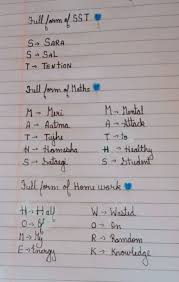 Full form of SST
S → SARA
S → SAL
T → TENTION
Full form of Maths
M → Meri M → Mental
A → Aatma A → Attack
T → Tujhe T → To
H → Hamesha H → Healthy
S → Satayegi S → Student
Full form of Home work
H → Half W → Wasted
O → Of O → On
M → My R → Random
E → Energy K → Knowledge